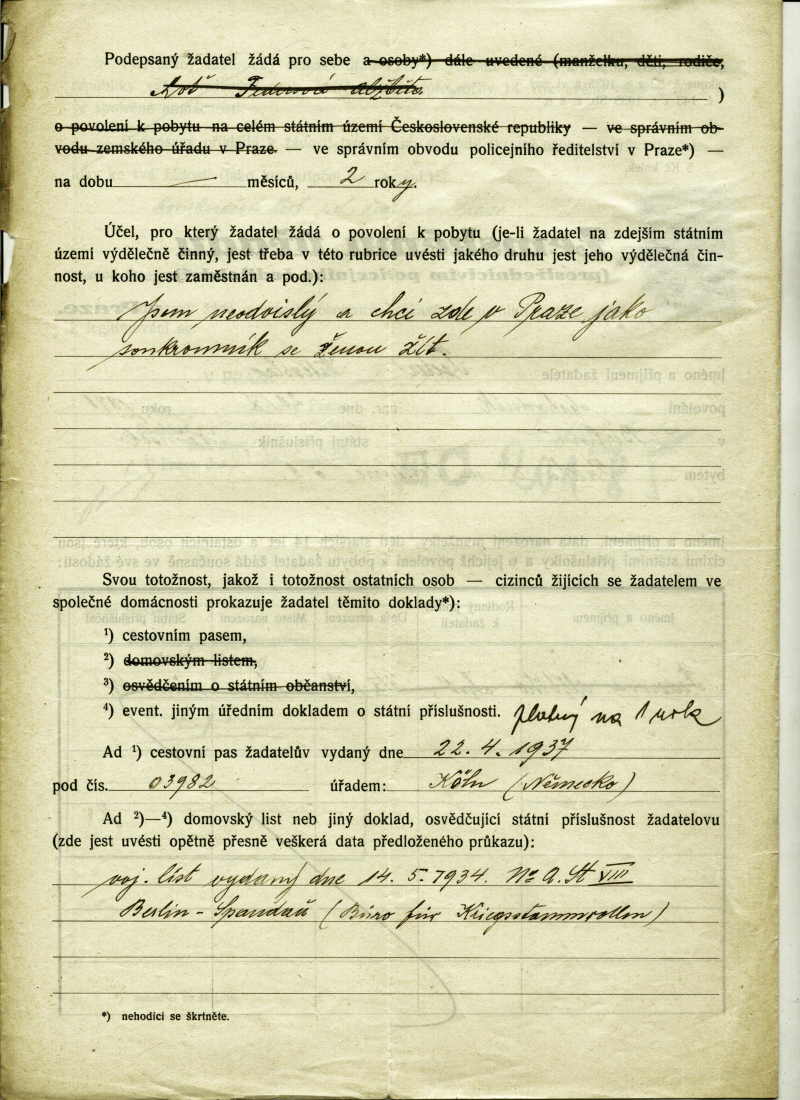 Podepsaný žadatel žádá pro sebe a osoby*) dále uvedené (manželku, děti, rodiče,
)
o povolení k pobytu na celém státním území Československé republiky — ve správním ob-
vodu zemského úřadu v Praze. — ve správním obvodu policejního ředitelství v Praze*) —
na dobu — měsíců, 2 roky.
Účel, pro který žadatel žádá o povolení k pobytu (je-li žadatel na zdejším státním
území výdělečně činný, jest třeba v této rubrice uvésti jakého druhu jest jeho výdělečná čin-
nost, u koho jest zaměstnán a pod.):
Jsem neodvislý a chci zde v Praze jako
soukromník se ženou žít.
Svou totožnost, jakož i totožnost ostatních osob — cizinců žijících se žadatelem ve
společné domácnosti prokazuje žadatel těmito doklady*):
¹) cestovním pasem,
²) domovským listem,
³) osvědčením o státním občanství,
⁴) event. jiným úředním dokladem o státní příslušnosti. platný na 1 rok
Ad ¹) cestovní pas žadatelův vydaný dne 22. 4. 1937
pod čís. 03982 úřadem: Köln (Německo)
Ad ²)—⁴) domovský list neb jiný doklad, osvědčující státní příslušnost žadatelovu
(zde jest uvésti opětně přesně veškerá data předloženého průkazu):
voj. list vydaný dne 14. 5. 1934. No A. St VIII
Berlin - Spandau (Büro für Kriegsstammrollen)
*) nehodící se škrtněte.